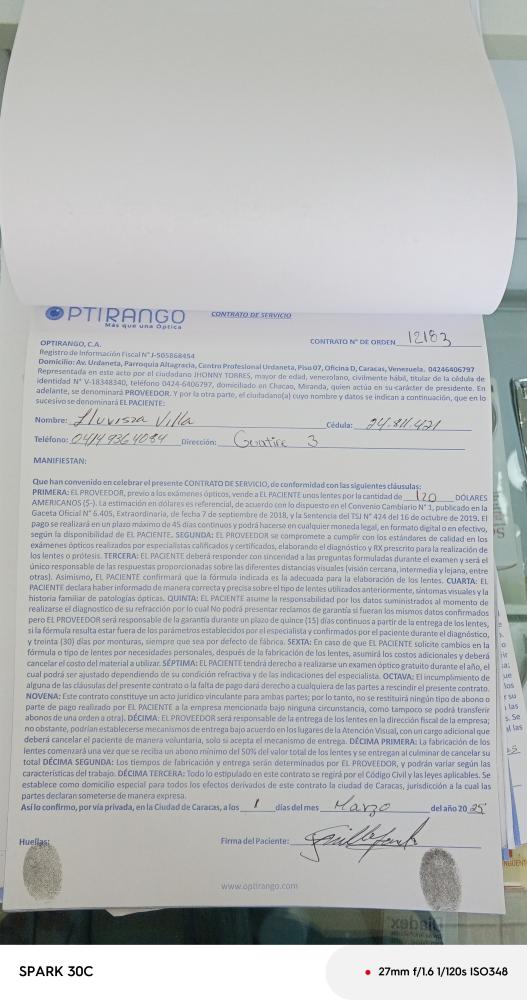 OPTIRANGO
Más que una Óptica
CONTRATO DE SERVICIO
CONTRATO N° DE ORDEN 12183
OPTIRANGO, C.A.
Registro de Información Fiscal N° J-505868454
Domicilio: Av. Urdaneta, Parroquia Altagracia, Centro Profesional Urdaneta, Piso 07, Oficina D, Caracas, Venezuela, 04246406797
Representada en este acto por el ciudadano JHONNY TORRES, mayor de edad, venezolano, civilmente hábil, titular de la cédula de
identidad N° V-18348340, teléfono 0424-6406797, domiciliado en Chacao, Miranda, quien actúa en su carácter de presidente. En
adelante, se denominará PROVEEDOR. Y por la otra parte, el ciudadano(a) cuyo nombre y datos se indican a continuación, que en lo
sucesivo se denominará EL PACIENTE:
Nombre: Villa Cédula: 24.811.421
Teléfono: 04149364084 Dirección: Guatire 3
MANIFIESTAN:
Que han convenido en celebrar el presente CONTRATO DE SERVICIO, de conformidad con las siguientes cláusulas:
PRIMERA: EL PROVEEDOR, previo a los exámenes ópticos, vende a EL PACIENTE unos lentes por la cantidad de 120 DÓLARES
AMERICANOS ($-). La estimación en dólares es referencial, de acuerdo con lo dispuesto en el Convenio Cambiario N° 1, publicado en la
Gaceta Oficial N° 6.405, Extraordinaria, de fecha 7 de septiembre de 2018, y la Sentencia del TSJ N° 424 del 16 de octubre de 2019. El
pago se realizará en un plazo máximo de 45 días continuos y podrá hacerse en cualquier moneda legal, en formato digital o en efectivo,
según la disponibilidad de EL PACIENTE. SEGUNDA: EL PROVEEDOR se compromete a cumplir con los estándares de calidad en los
exámenes ópticos realizados por especialistas calificados y certificados, elaborando el diagnóstico y RX prescrito para la realización de
los lentes o prótesis. TERCERA: EL PACIENTE deberá responder con sinceridad a las preguntas formuladas durante el examen y será el
único responsable de las respuestas proporcionadas sobre las diferentes distancias visuales (visión cercana, intermedia y lejana, entre
otras). Asimismo, EL PACIENTE confirmará que la fórmula indicada es la adecuada para la elaboración de los lentes. CUARTA: EL
PACIENTE declara haber informado de manera correcta y precisa sobre el tipo de lentes utilizados anteriormente, síntomas visuales y la
historia familiar de patologías ópticas. QUINTA: EL PACIENTE asume la responsabilidad por los datos suministrados al momento de
realizarse el diagnostico de su refracción por lo cual No podrá presentar reclamos de garantía si fueran los mismos datos confirmados
pero EL PROVEEDOR será responsable de la garantía durante un plazo de quince (15) días continuos a partir de la entrega de los lentes,
si la fórmula resulta estar fuera de los parámetros establecidos por el especialista y confirmados por el paciente durante el diagnóstico,
y treinta (30) días por monturas, siempre que sea por defecto de fábrica. SEXTA: En caso de que EL PACIENTE solicite cambios en la
fórmula o tipo de lentes por necesidades personales, después de la fabricación de los lentes, asumirá los costos adicionales y deberá
cancelar el costo del material a utilizar. SÉPTIMA: EL PACIENTE tendrá derecho a realizarse un examen óptico gratuito durante el año, el
cual podrá ser ajustado dependiendo de su condición refractiva y de las indicaciones del especialista. OCTAVA: El incumplimiento de
alguna de las cláusulas del presente contrato o la falta de pago dará derecho a cualquiera de las partes a rescindir el presente contrato.
NOVENA: Este contrato constituye un acto jurídico vinculante para ambas partes; por lo tanto, no se restituirá ningún tipo de abono o
parte de pago realizado por EL PACIENTE a la empresa mencionada bajo ninguna circunstancia, como tampoco se podrá transferir
abonos de una orden a otra). DÉCIMA: EL PROVEEDOR será responsable de la entrega de los lentes en la dirección fiscal de la empresa;
no obstante, podrían establecerse mecanismos de entrega bajo acuerdo en los lugares de la Atención Visual, con un cargo adicional que
deberá cancelar el paciente de manera voluntaria, solo si acepta el mecanismo de entrega. DÉCIMA PRIMERA: La fabricación de los
lentes comenzará una vez que se reciba un abono mínimo del 50% del valor total de los lentes y se entregan al culminar de cancelar su
total DÉCIMA SEGUNDA: Los tiempos de fabricación y entrega serán determinados por EL PROVEEDOR, y podrán variar según las
características del trabajo. DÉCIMA TERCERA: Todo lo estipulado en este contrato se regirá por el Código Civil y las leyes aplicables. Se
establece como domicilio especial para todos los efectos derivados de este contrato la ciudad de Caracas, jurisdicción a la cual las
partes declaran someterse de manera expresa.
Así lo confirmo, por vía privada, en la Ciudad de Caracas, a los 1 días del mes Marzo del año 2025
Huellas: Firma del Paciente:
www.optirango.com
SPARK 30C
27mm f/1.6 1/120s ISO348